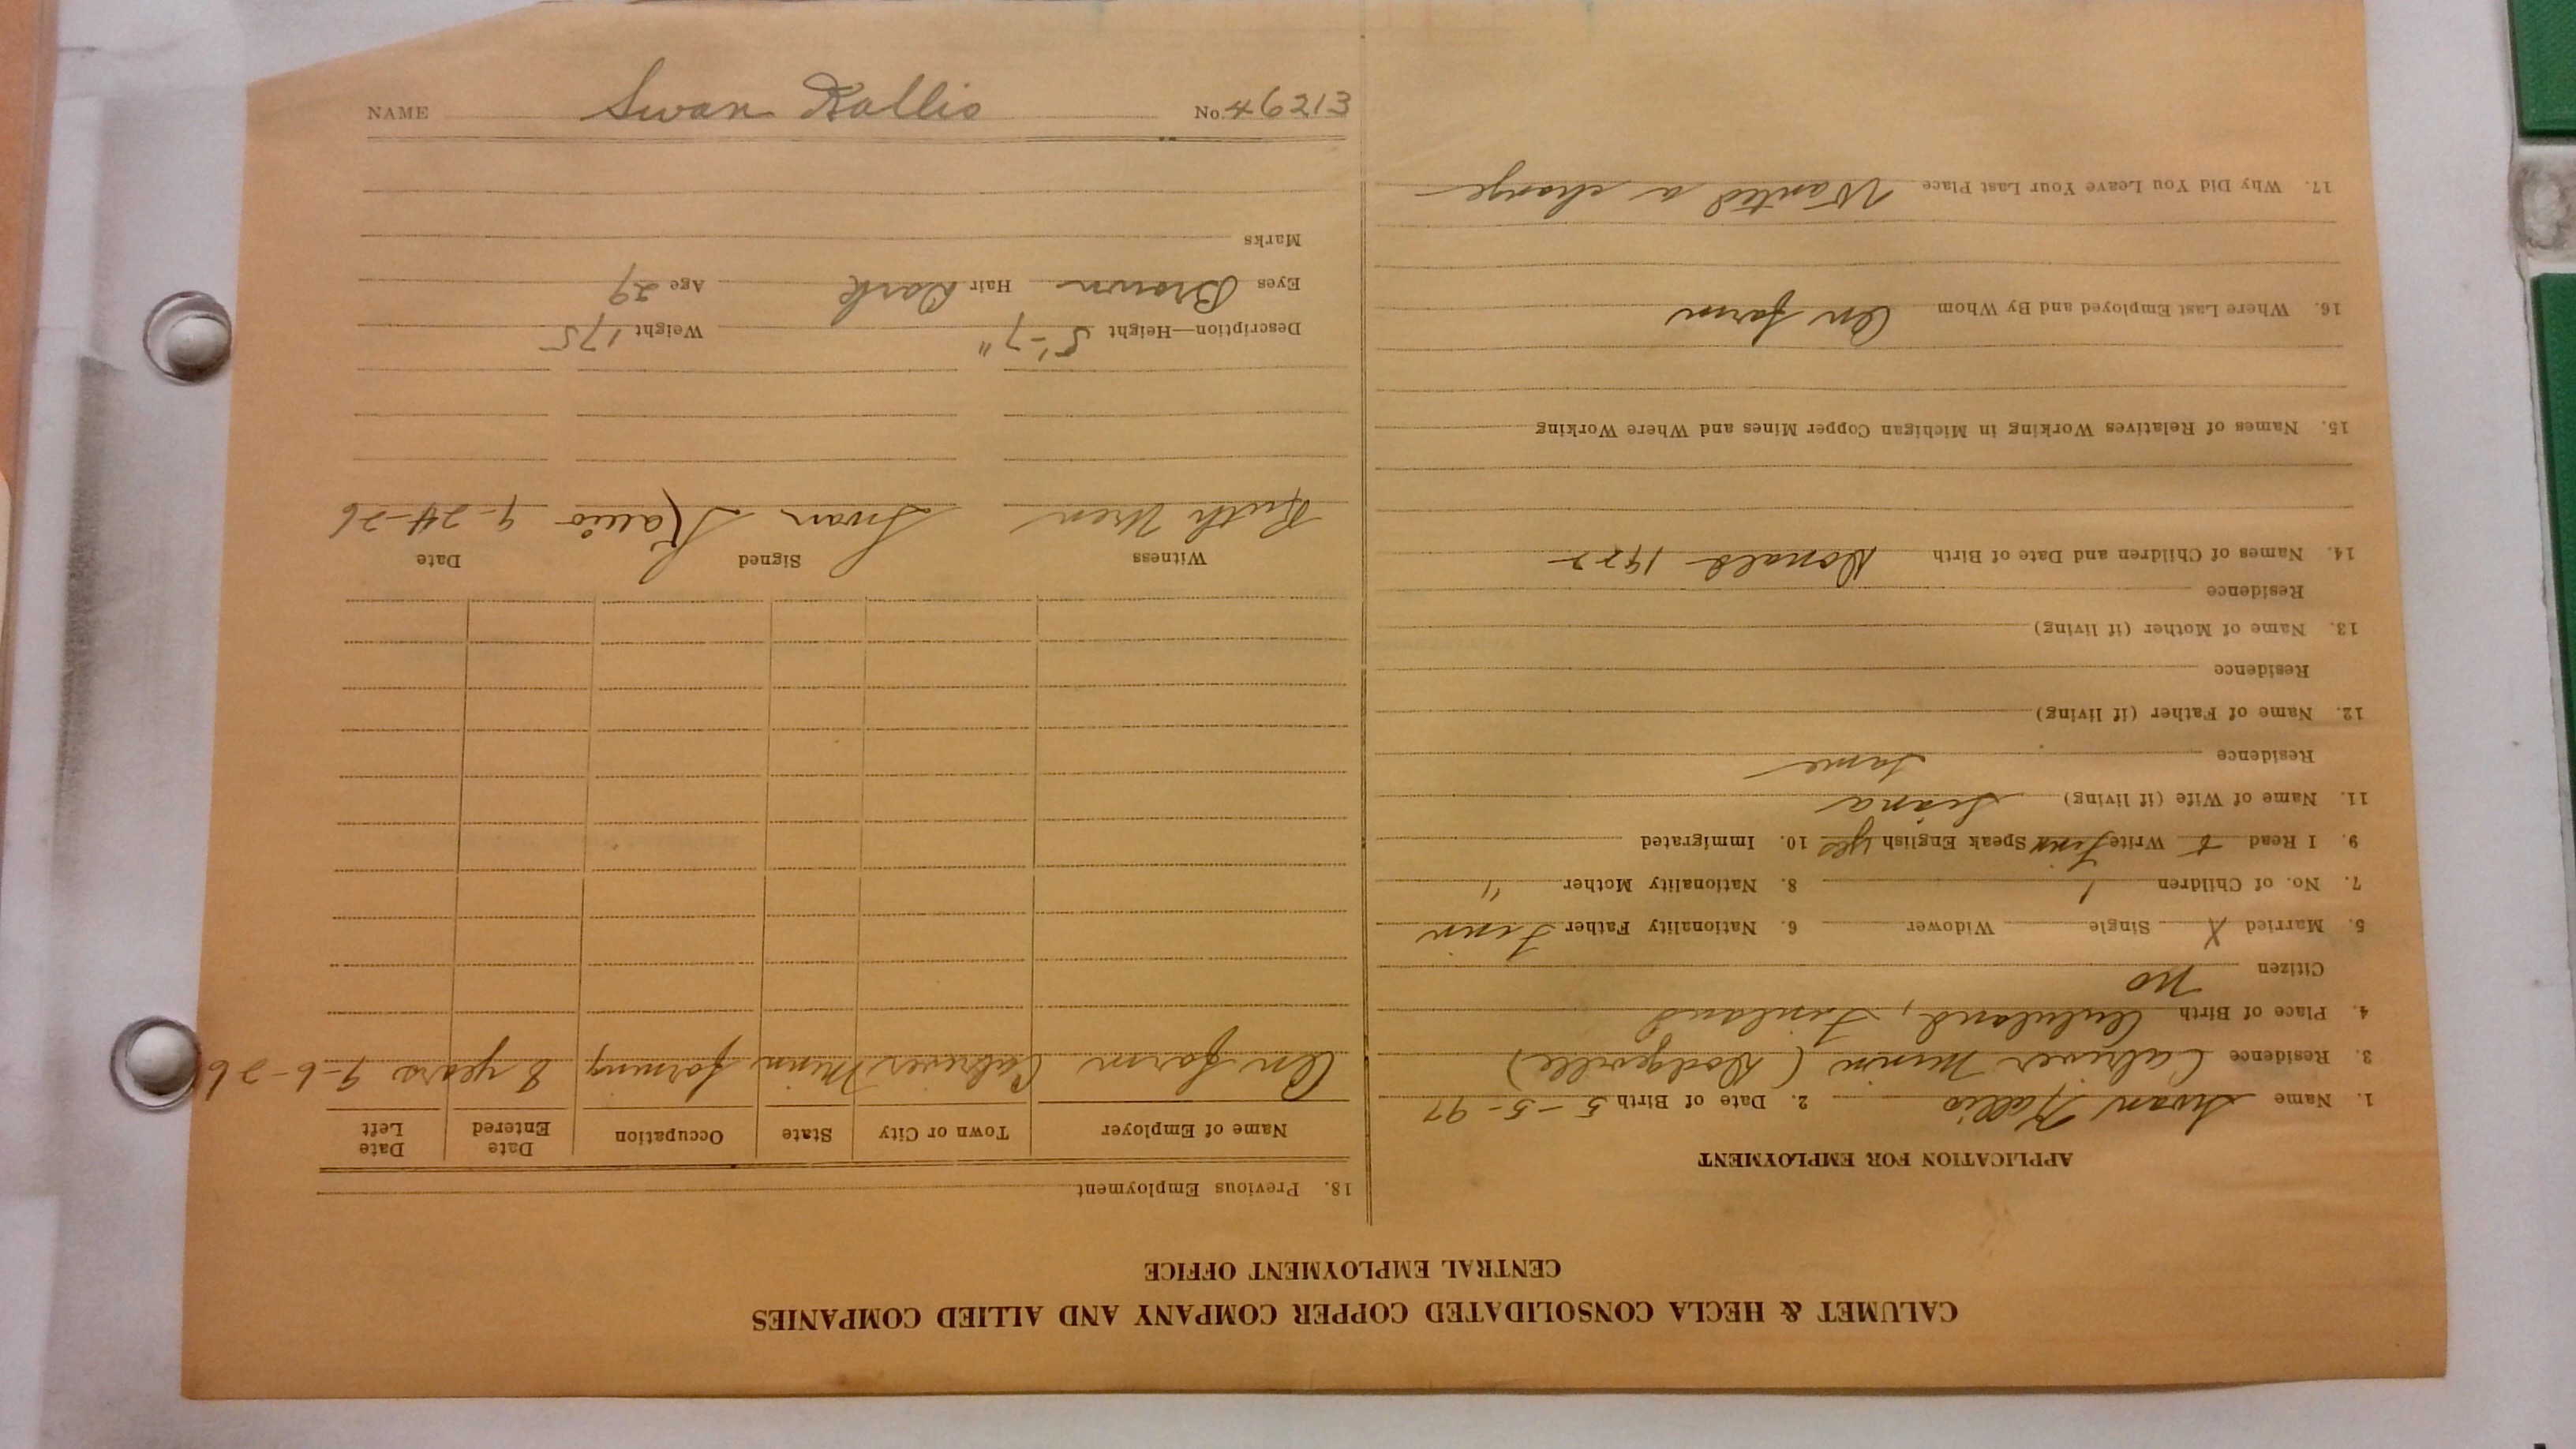 NAME Swan Kallio No. 46213
CALUMET & HECLA CONSOLIDATED COPPER COMPANY AND ALLIED COMPANIES
CENTRAL EMPLOYMENT OFFICE
APPLICATION FOR EMPLOYMENT
1. Name Swan Kallio 2. Date of Birth 5-5-97
3. Residence Minn (Dodgeville)
4. Place of Birth Finland
Citizen no
5. Married X Single Widower 6. Nationality Father Finn
7. No. of Children 1 8. Nationality Mother "
9. I Read & Write Finn Speak English yes 10. Immigrated
11. Name of Wife (if living)
Residence Same
12. Name of Father (if living)
Residence
13. Name of Mother (if living)
Residence
14. Names of Children and Date of Birth Donald 1922
15. Names of Relatives Working in Michigan Copper Mines and Where Working
16. Where Last Employed and By Whom On farm
17. Why Did You Leave Your Last Place Wanted a change
18. Previous Employment
Name of Employer Town or City State Occupation Date Entered Date Left
On farm Minn farming 8 years 9-6-26
Witness Signed Date
Ruth Uren Swan Kallio 9-24-26
Description—Height 5'-7" Weight 175
Eyes Brown Hair Dark Age 29
Marks